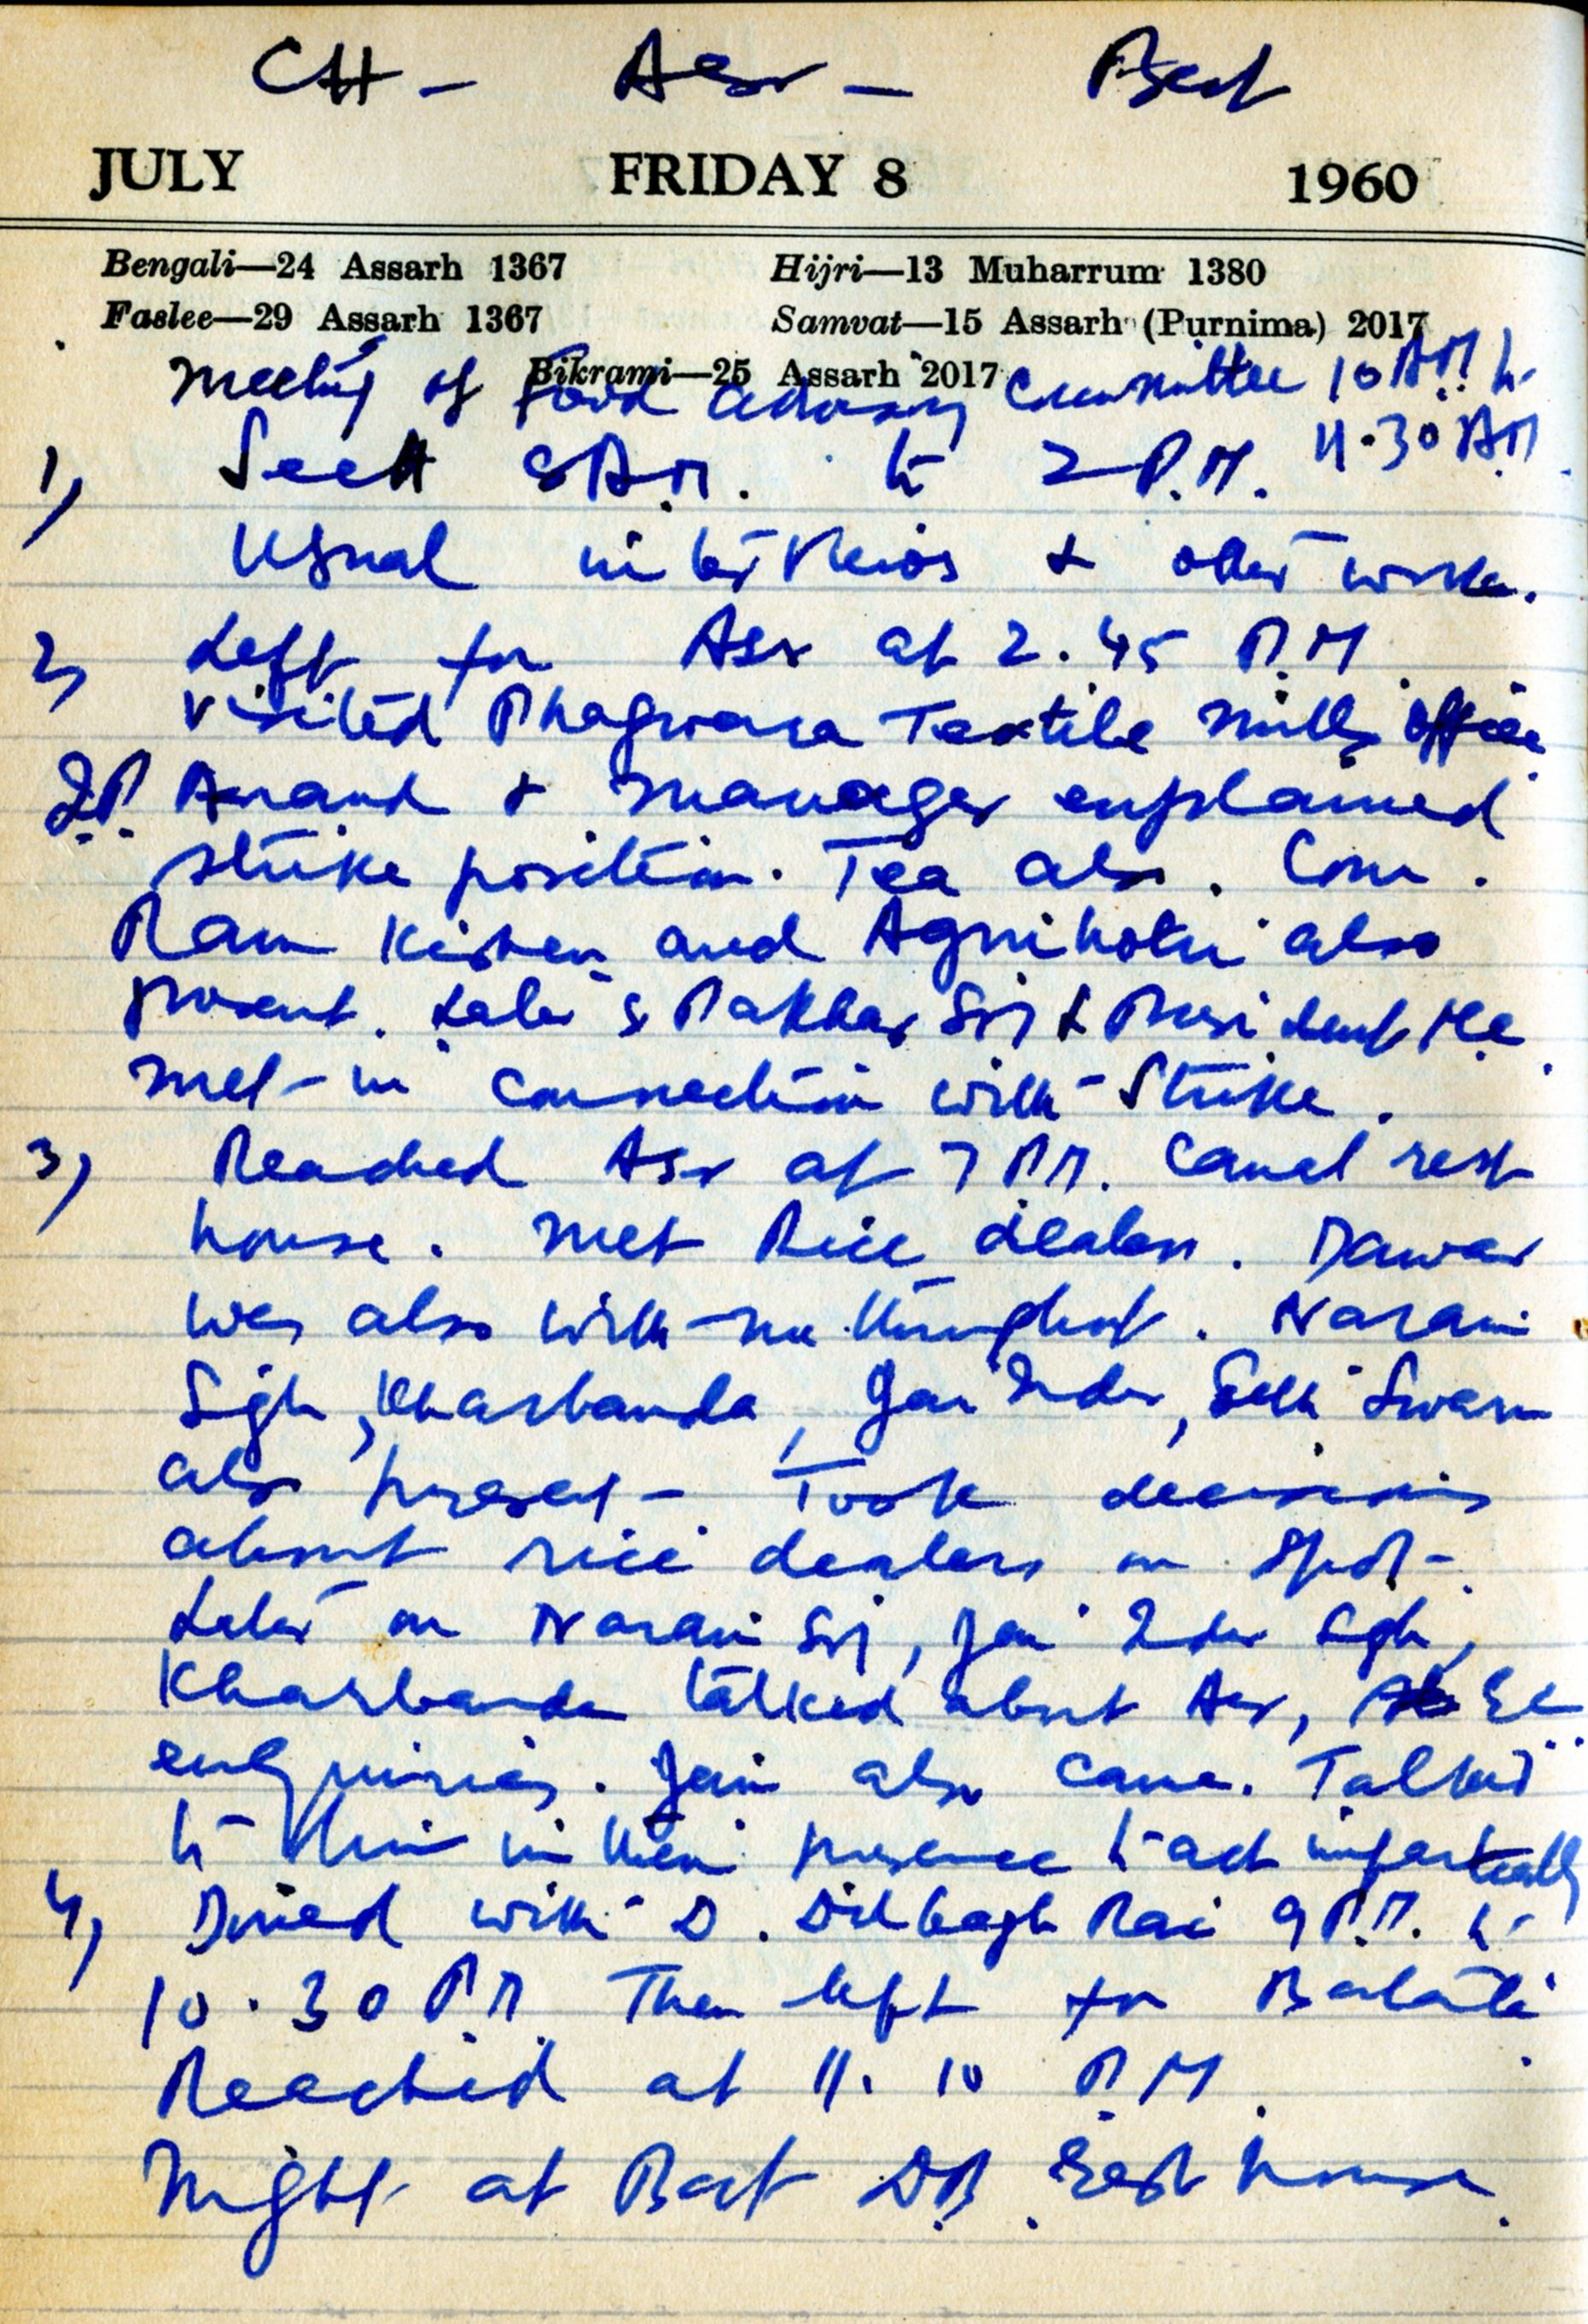 CH - Asr - Bat
JULY FRIDAY 8 1960
Bengali—24 Assarh 1367 Hijri—13 Muharrum 1380
Faslee—29 Assarh 1367 Samvat—15 Assarh (Purnima) 2017
Bikrami—25 Assarh 2017
Meeting of Food advisory Committee 10 AM to
11.30 AM
1) Sectt 8 A.M. to 2 P.M.
Usual interviews & other work.
2) Left for Asr at 2.45 P.M.
Visited Phagwara Textile Mills office
J.P. Anand & manager explained
strike position. Tea also. Com.
Ram Kishen and Agnihotri also
present. Later S Rakhar & President M.C.
met in connection with Strike.
3) Reached Asr at 7 P.M. Canal rest
house. Met Rice dealers. Dawar
was also with me throughout. Narain
Sigh, Kharbanda, Jai Inder, Swarn
also present - Took decisions
about rice dealers on spot -
Later on Narain, Jai Inder Sgh,
Kharbanda talked about Asr,
enquiries. Jain also came. Talked
to him in their presence to act impartially
4) Dined with D. Dilbagh Rai 9 P.M. to
10.30 P.M. Then left for Batala
Reached at 11.10 P.M.
Night at Bat DB. Rest house.